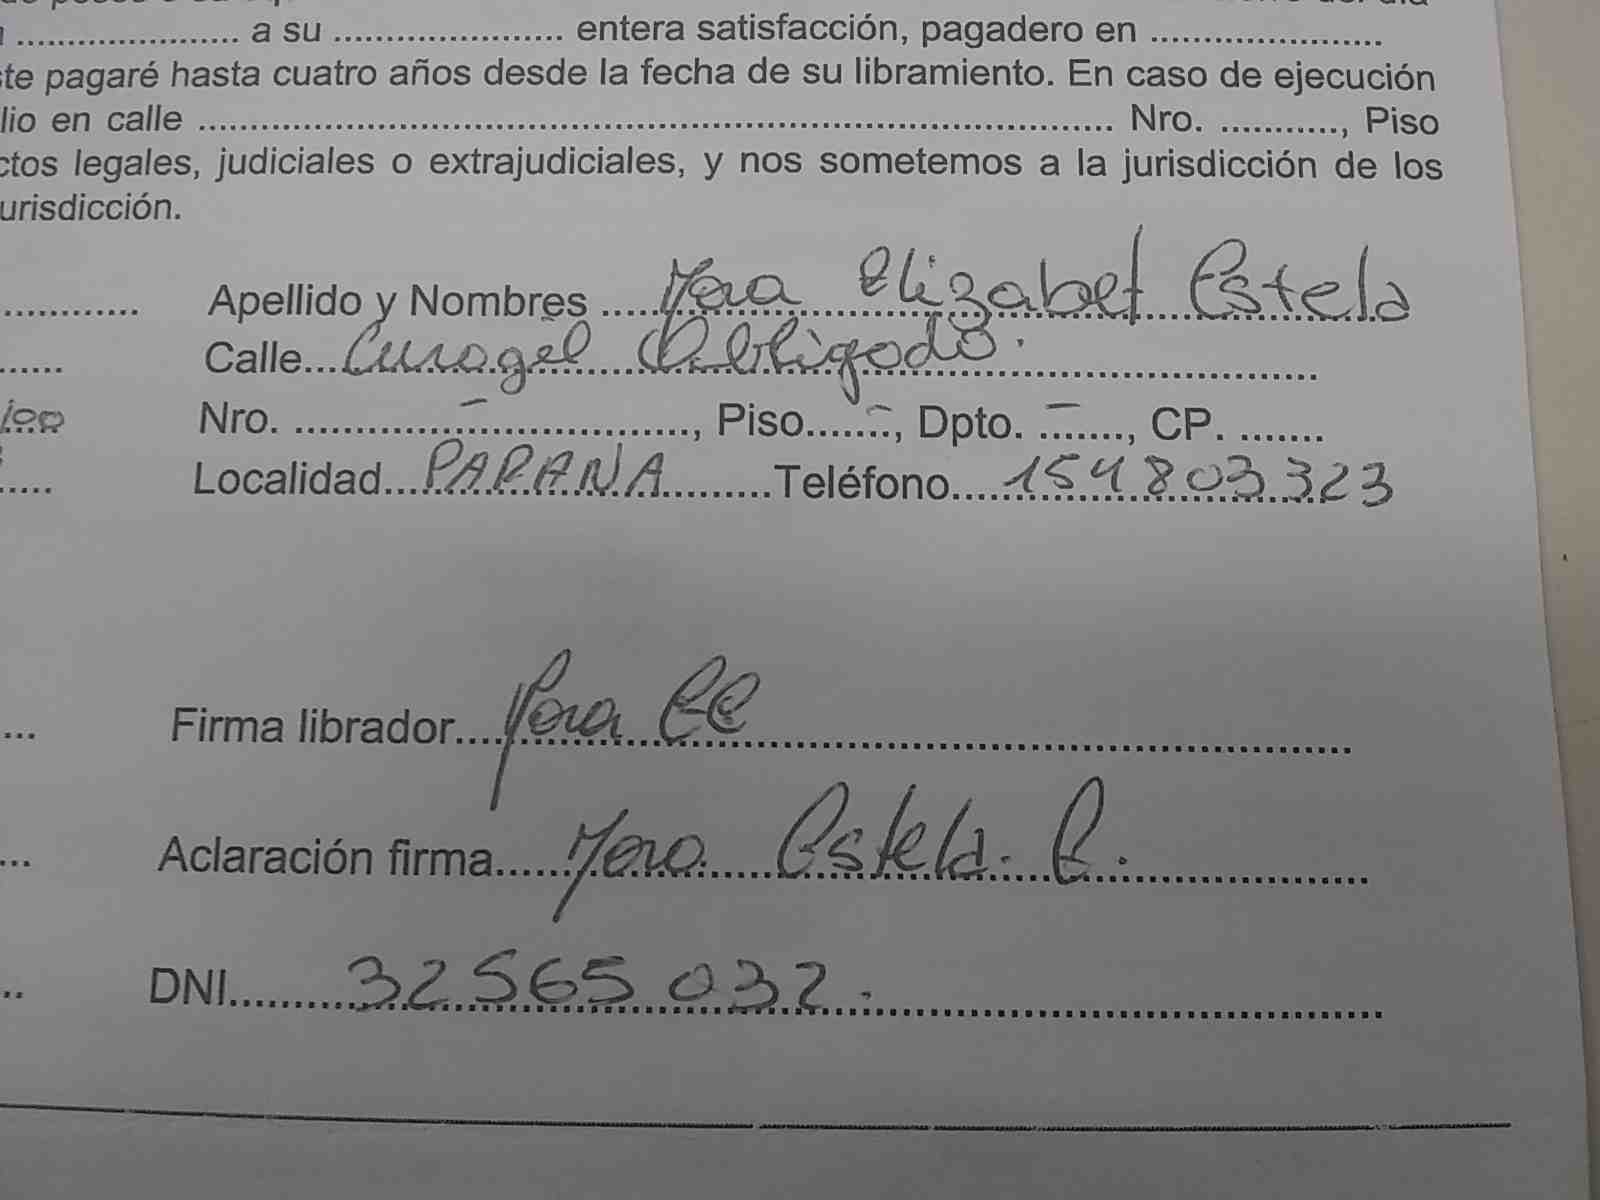 a su ...................... entera satisfacción, pagadero en ......................
te pagaré hasta cuatro años desde la fecha de su libramiento. En caso de ejecución
lio en calle ........................................ Nro. ..........., Piso
ctos legales, judiciales o extrajudiciales, y nos sometemos a la jurisdicción de los
urisdicción.
Apellido y Nombres ..... Elizabet Estela
Calle... Obligado.
Nro. ... - ..., Piso... - ..., Dpto. - ..., CP. ........
Localidad... PARANA ...Teléfono... 154803323
Firma librador....
Aclaración firma.... Estela. E.
DNI.... 32565032.